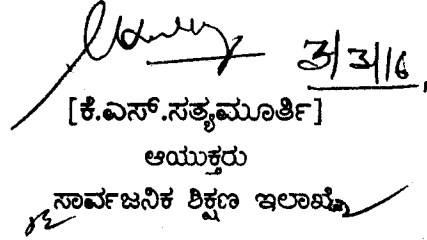 3/3/16
[ಕೆ.ಎಸ್.ಸತ್ಯಮೂರ್ತಿ]
ಆಯುಕ್ತರು
ಸಾರ್ವಜನಿಕ ಶಿಕ್ಷಣ ಇಲಾಖೆ